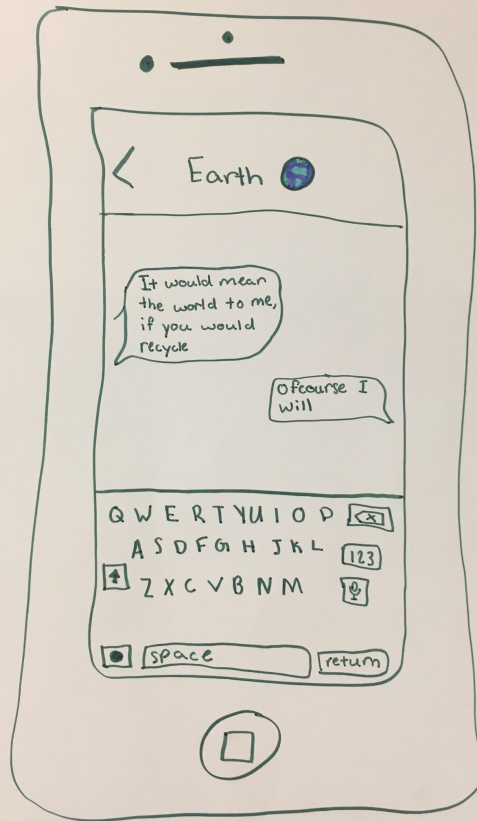 Earth
It would mean
the world to me,
if you would
recycle
Ofcourse I
will
Q W E R T Y U I O P
A S D F G H J K L
123
Z X C V B N M
space
return